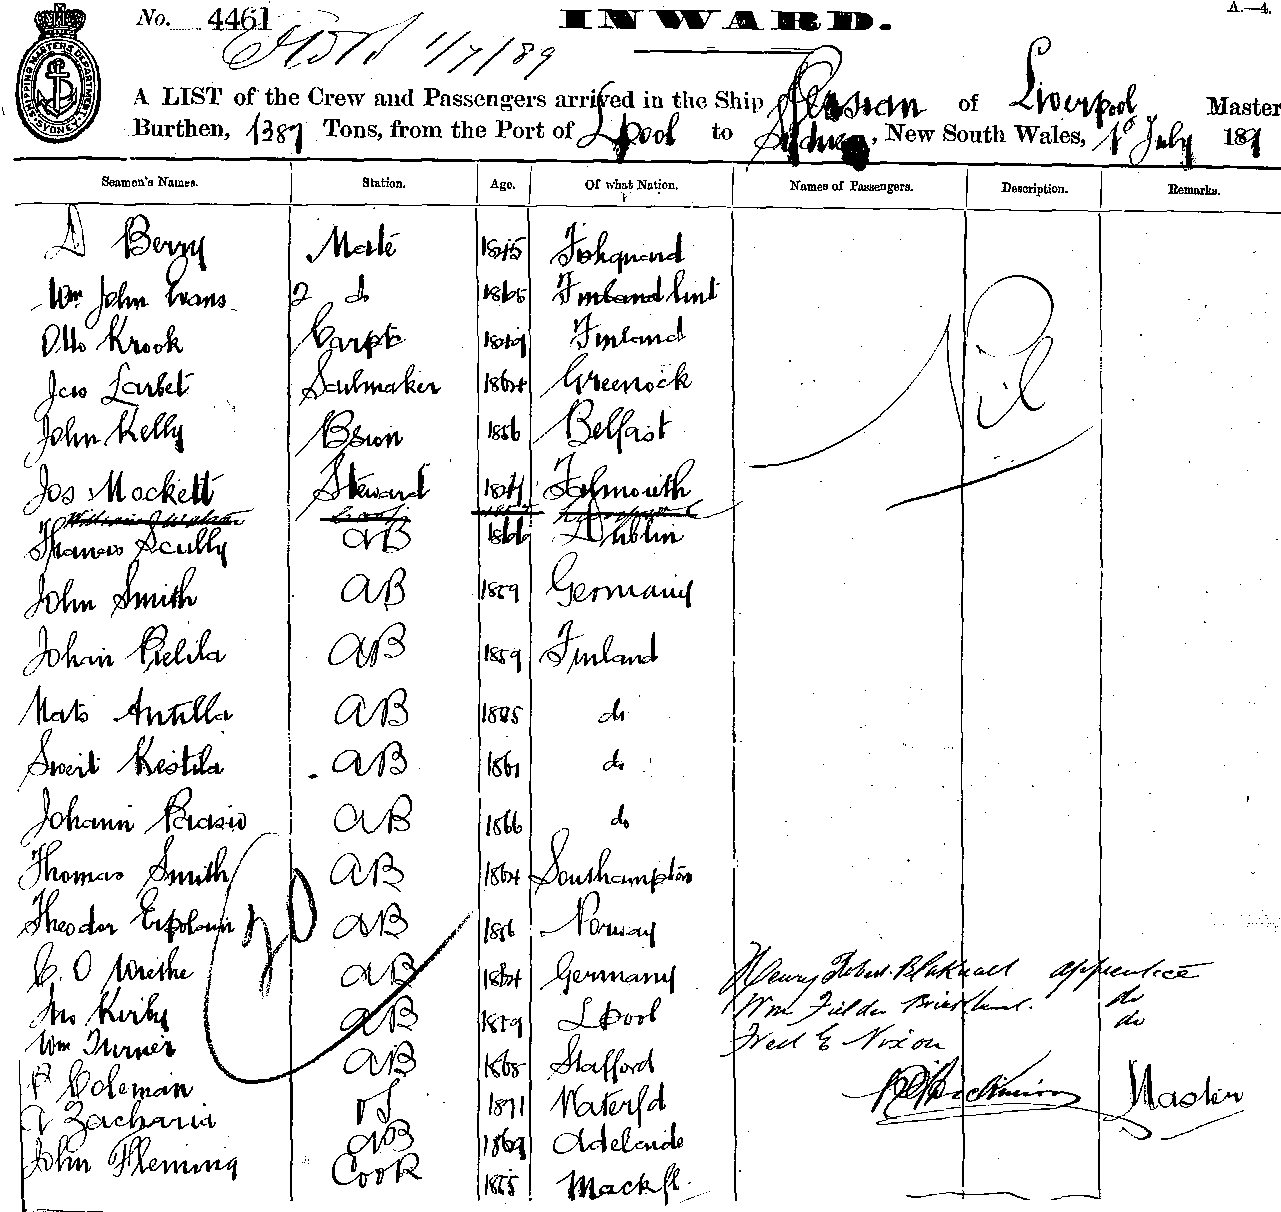 No. 4461 INWARD. A.—4.
1/7/89
SHIPPING MASTERS DEPARTMENT SYDNEY
A LIST of the Crew and Passengers arrived in the Ship Persian of Liverpool Master
Burthen, 1387 Tons, from the Port of Lpool to Sydney, New South Wales, 1st July 189
Seamen's Names. Station. Age. Of what Nation. Names of Passengers. Description. Remarks.
D Berry Mate 1845 Fishguard
Wm John Evans 2 do 1865 Finland
Otto Krook Carptr Finland
Nil
Jas Sailmaker 1864 Greenock
John Kelly Bswn 1856 Belfast
Jos Mockett Steward Falmouth
Thomas Scully AB 1866 Dublin
John Smith AB 1859 Germany
Johan Pielila AB 1859 Finland
Mats Antilla AB do
Kestila AB 1861 do
Johann AB 1866 do
Thomas Smith AB 1864 Southampton
20
Theodor AB 1856 Norway
C. O AB 1864 Germany Henry Robert apprentice
Jno Kirby AB 1859 Lpool Wm Fielder do
Wm Turner AB 1868 Stafford Fred E Nixon do
P Coleman OS 1871 Waterfd Master
A Zacharia AB 1869 Adelaide
John Fleming Cook